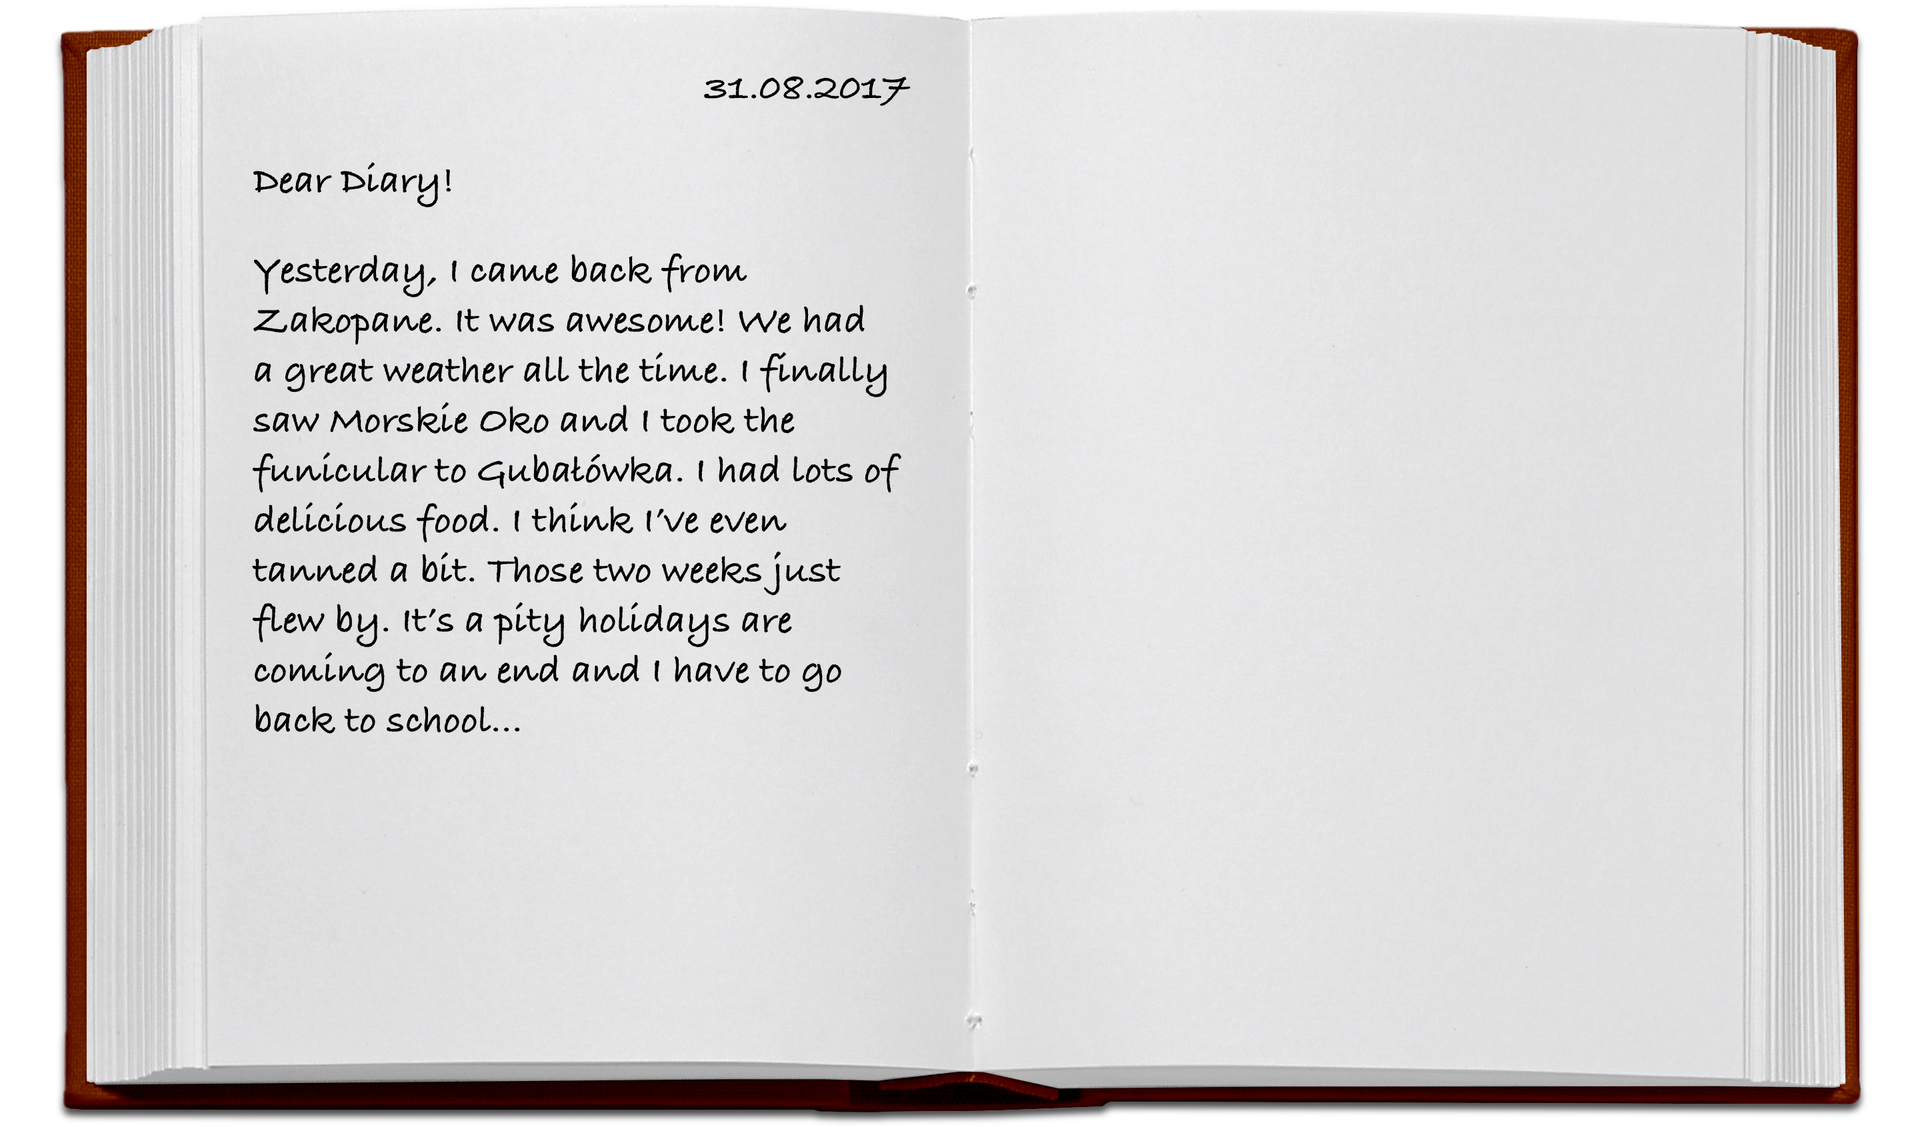 31.08.2017
Dear Diary!
Yesterday, I came back from
Zakopane. It was awesome! We had
a great weather all the time. I finally
saw Morskie Oko and I took the
funicular to Gubałówka. I had lots of
delicious food. I think I've even
tanned a bit. Those two weeks just
flew by. It's a pity holidays are
coming to an end and I have to go
back to school...